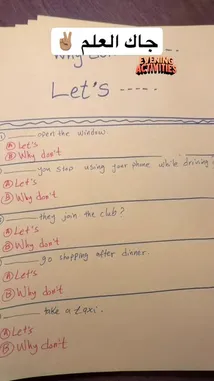 جاك العلم ✌🏽
Why don't ....
EVENING
ACTIVITIES
Let's -----
open the window
A Let's
B Why don't
you stop using your phone while driving
A Let's
B Why don't
they join the club?
A Let's
B Why don't
go shopping after dinner.
A Let's
B Why don't
take a taxi.
A Let's
B Why don't